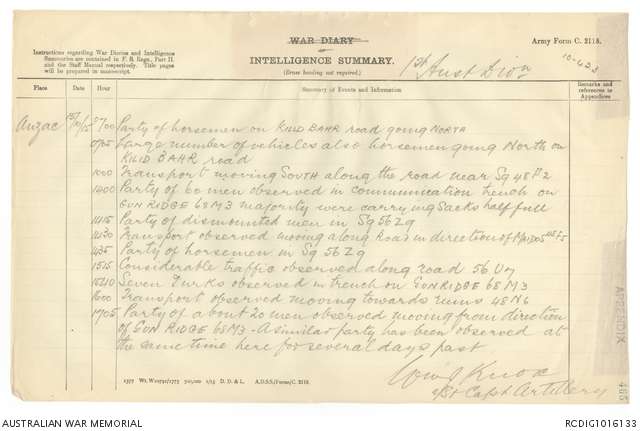 WAR DIARY
or
INTELLIGENCE SUMMARY.
(Erase heading not required.)
Army Form C. 2118.
Instructions regarding War Diaries and Intelligence
Summaries are contained in F. S. Regs., Part II.
and the Staff Manual respectively. Title pages
will be prepared in manuscript.
1st Aust Divn
10-623
Place
Date
Hour
Summary of Events and Information
Remarks and
references to
Appendices
Anzac 15/10/15 0700 Party of horsemen on KILID BAHR road going NORTH
0705 Large number of vehicles also horsemen going North on
KILID BAHR road
1000 Transport moving SOUTH along the road near Sq 48 P2
1400 Party of 60 men observed in communication trench on
GUN RIDGE 68 M3 majority were carrying sacks half full
1415 Party of dismounted men in Sq 56 Z9
1430 Transport observed moving along Road in direction of
1435 Party of horsemen in Sq 56 Z9
1515 Considerable traffic observed along road 56
1540 Seven Turks observed in trench on GUN RIDGE 68 M3
1600 Transport observed moving towards ruins 48 N6
1705 Party of about 20 men observed moving from direction
of GUN RIDGE 68 M3 - A similar party has been observed at
the same time here for several days past
Knox
Capt Artillery
APPENDIX
465
1577 Wt. W10791/1773 500,000 1/15 D. D. & L. A.D.S.S./Forms/C. 2118.
AUSTRALIAN WAR MEMORIAL
RCDIG1016133